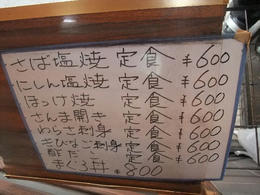 さば塩焼 定食 ¥600
にしん塩焼 定食 ¥600
ほっけ焼 定食 ¥600
さんま開き 定食 ¥600
わらさ刺身 定食 ¥600
きびなご刺身 定食 ¥600
酢だこ 定食 ¥600
まぐろ丼 ¥800